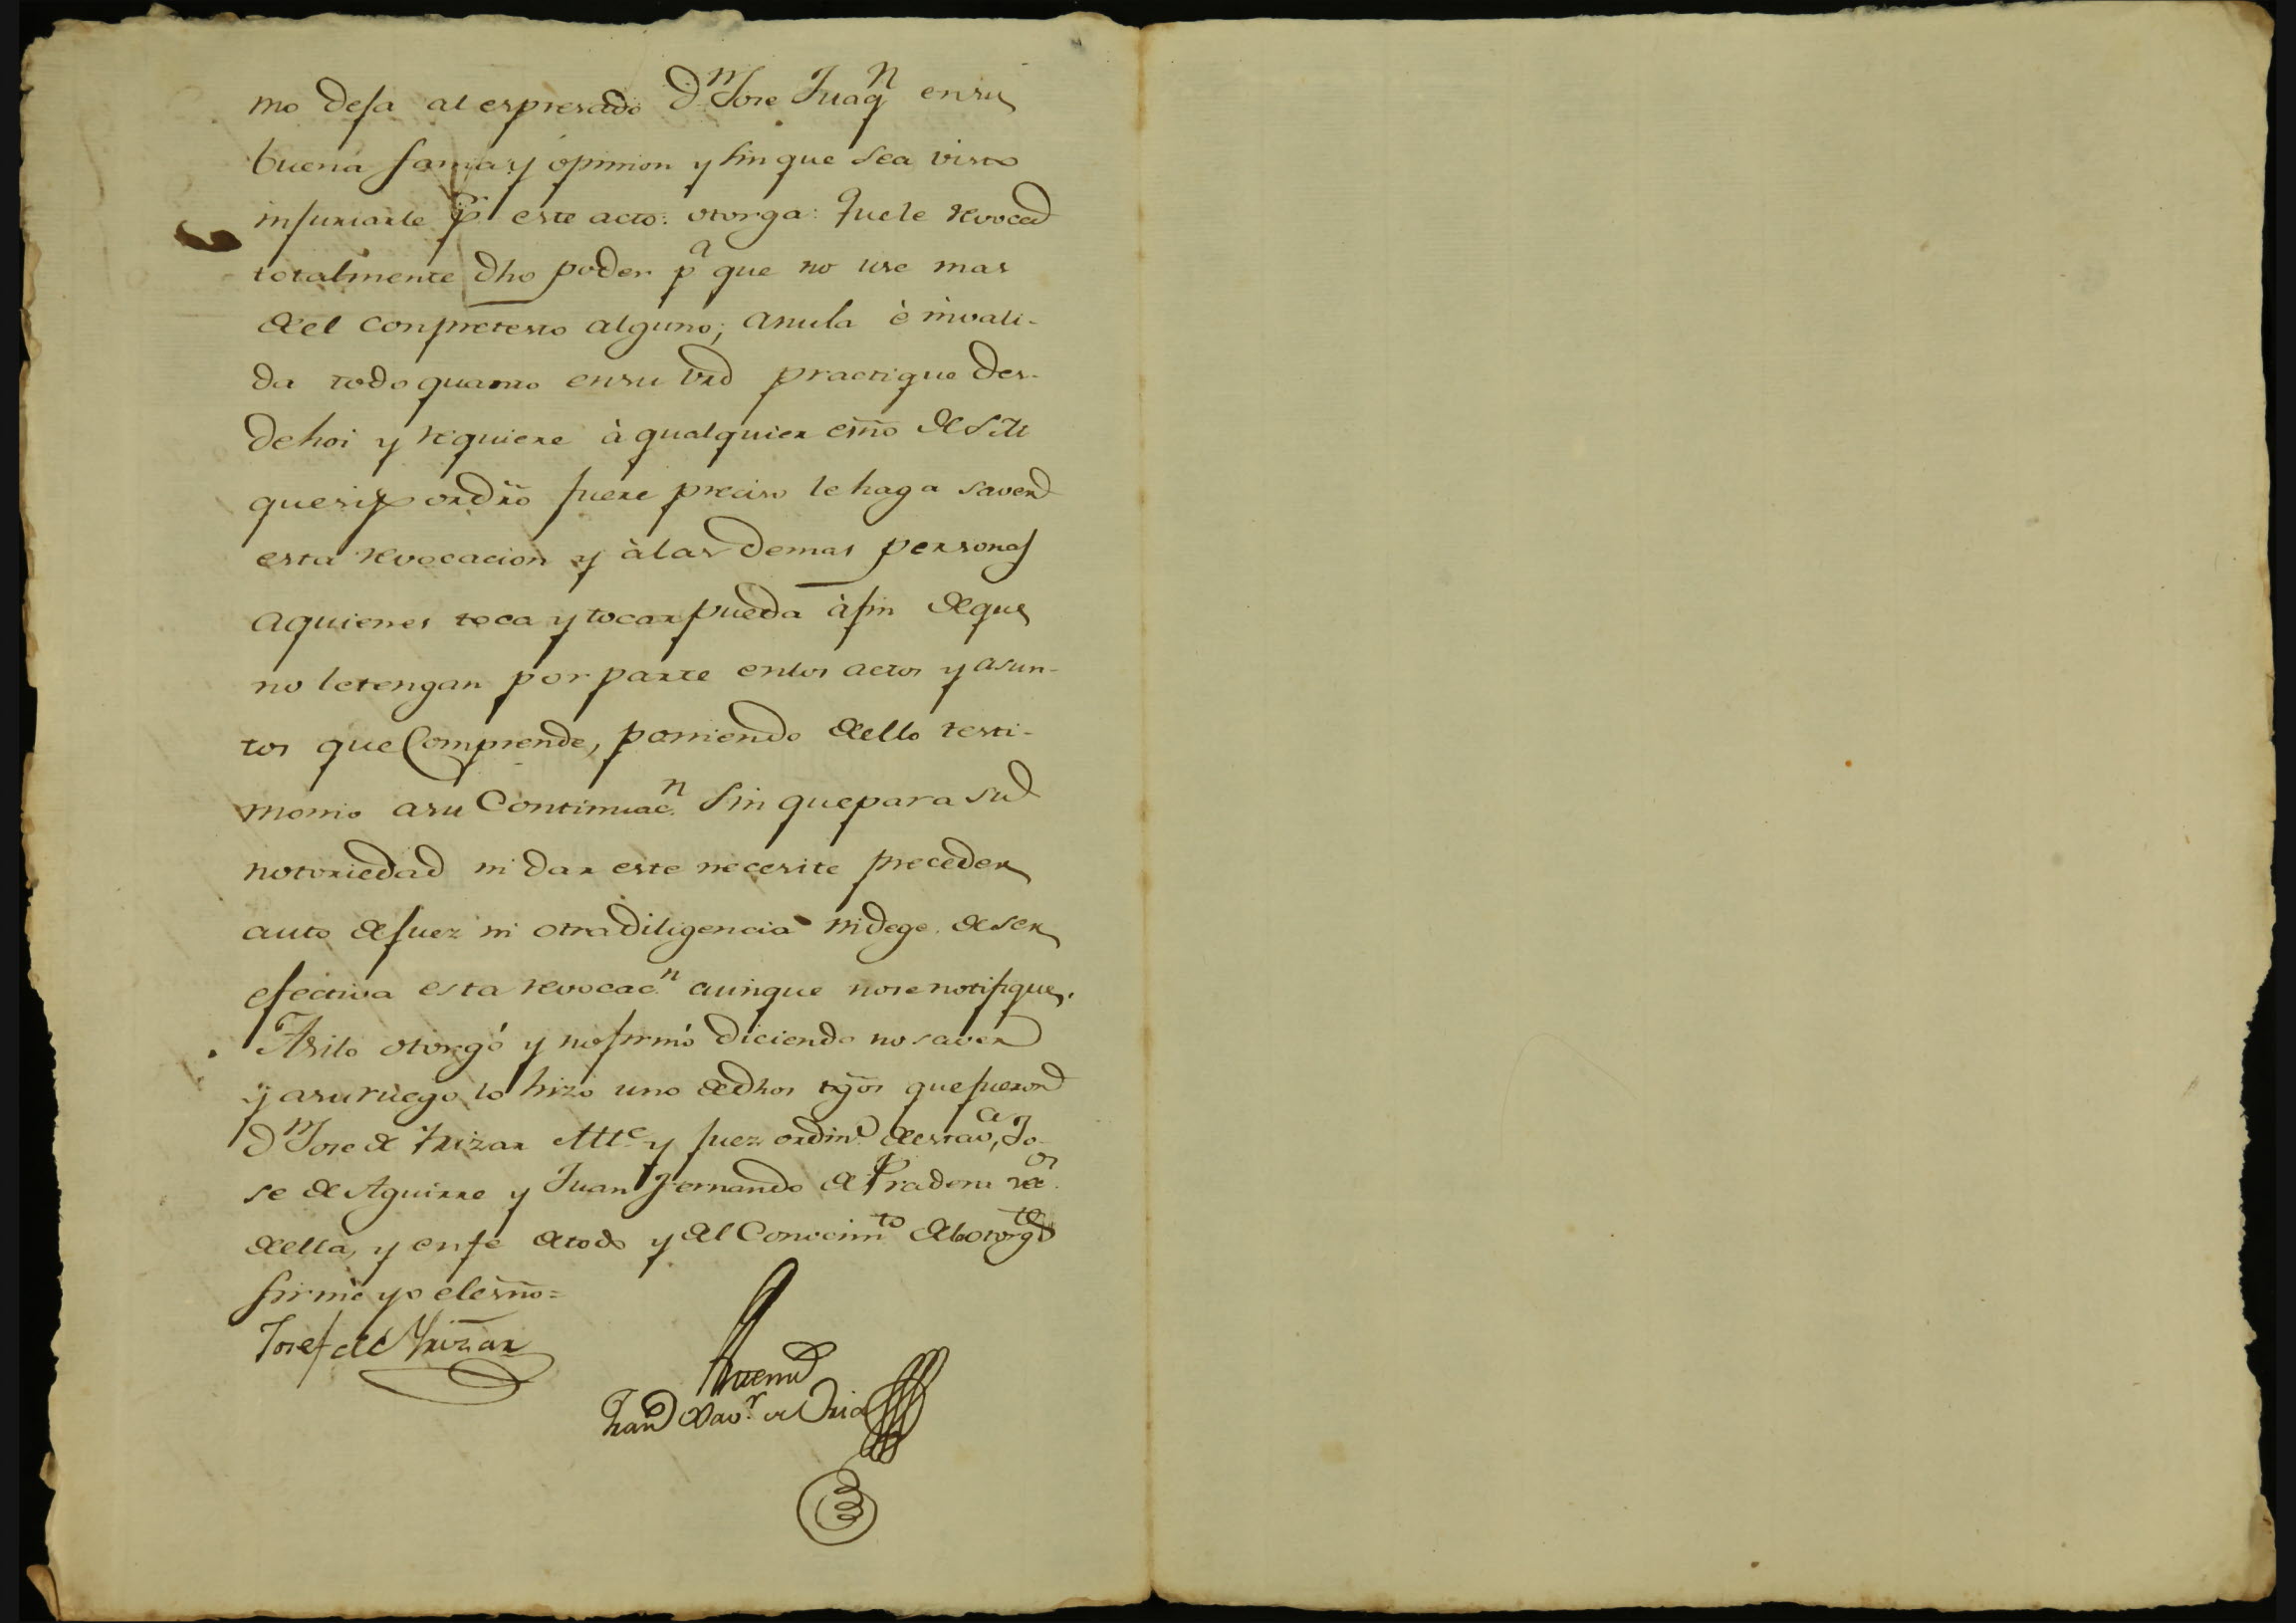 mo deja al espresado Dn Jose Juaqn ensu
buena fama y opinion y sin que sea visto
injuriarle pr este acto: otorga: Quele revoca
totalmente dho poder pa que no use mas
de el conpretesto alguno; anula è invali-
da todo quanto ensu vrd practique des-
de hoi y requiere à qualquier esño de S.M.
que siendo fuere preciso le haga saver
esta revocacion y àlas demas personas
aquienes toca y tocar pueda àfin deque
no letengan por parte enlos actos y asun-
tos que Comprende, poniendo dello testi-
monio asu Continuacn. sin quepara su
notoriedad ni dar este necesite preceder
auto de juez ni otra diligencia ni dege de ser
efectiva esta revocacn. aunque nose notifique.
Asilo otorgó y nofirmó diciendo no saver
y asuruego lo hizo uno de dhos tgos que fueron
Dn Jose de Yrizar Alle y juez ordino. de esta va, Jo-
se de Aguirre y Juan Fernando de Pradera vos.
de ella, y enfe detodo y del Conocimto delotorgte
firmé yo elesño=
Josef de Yrizar
Antemi
Franco Xavr. de Oria